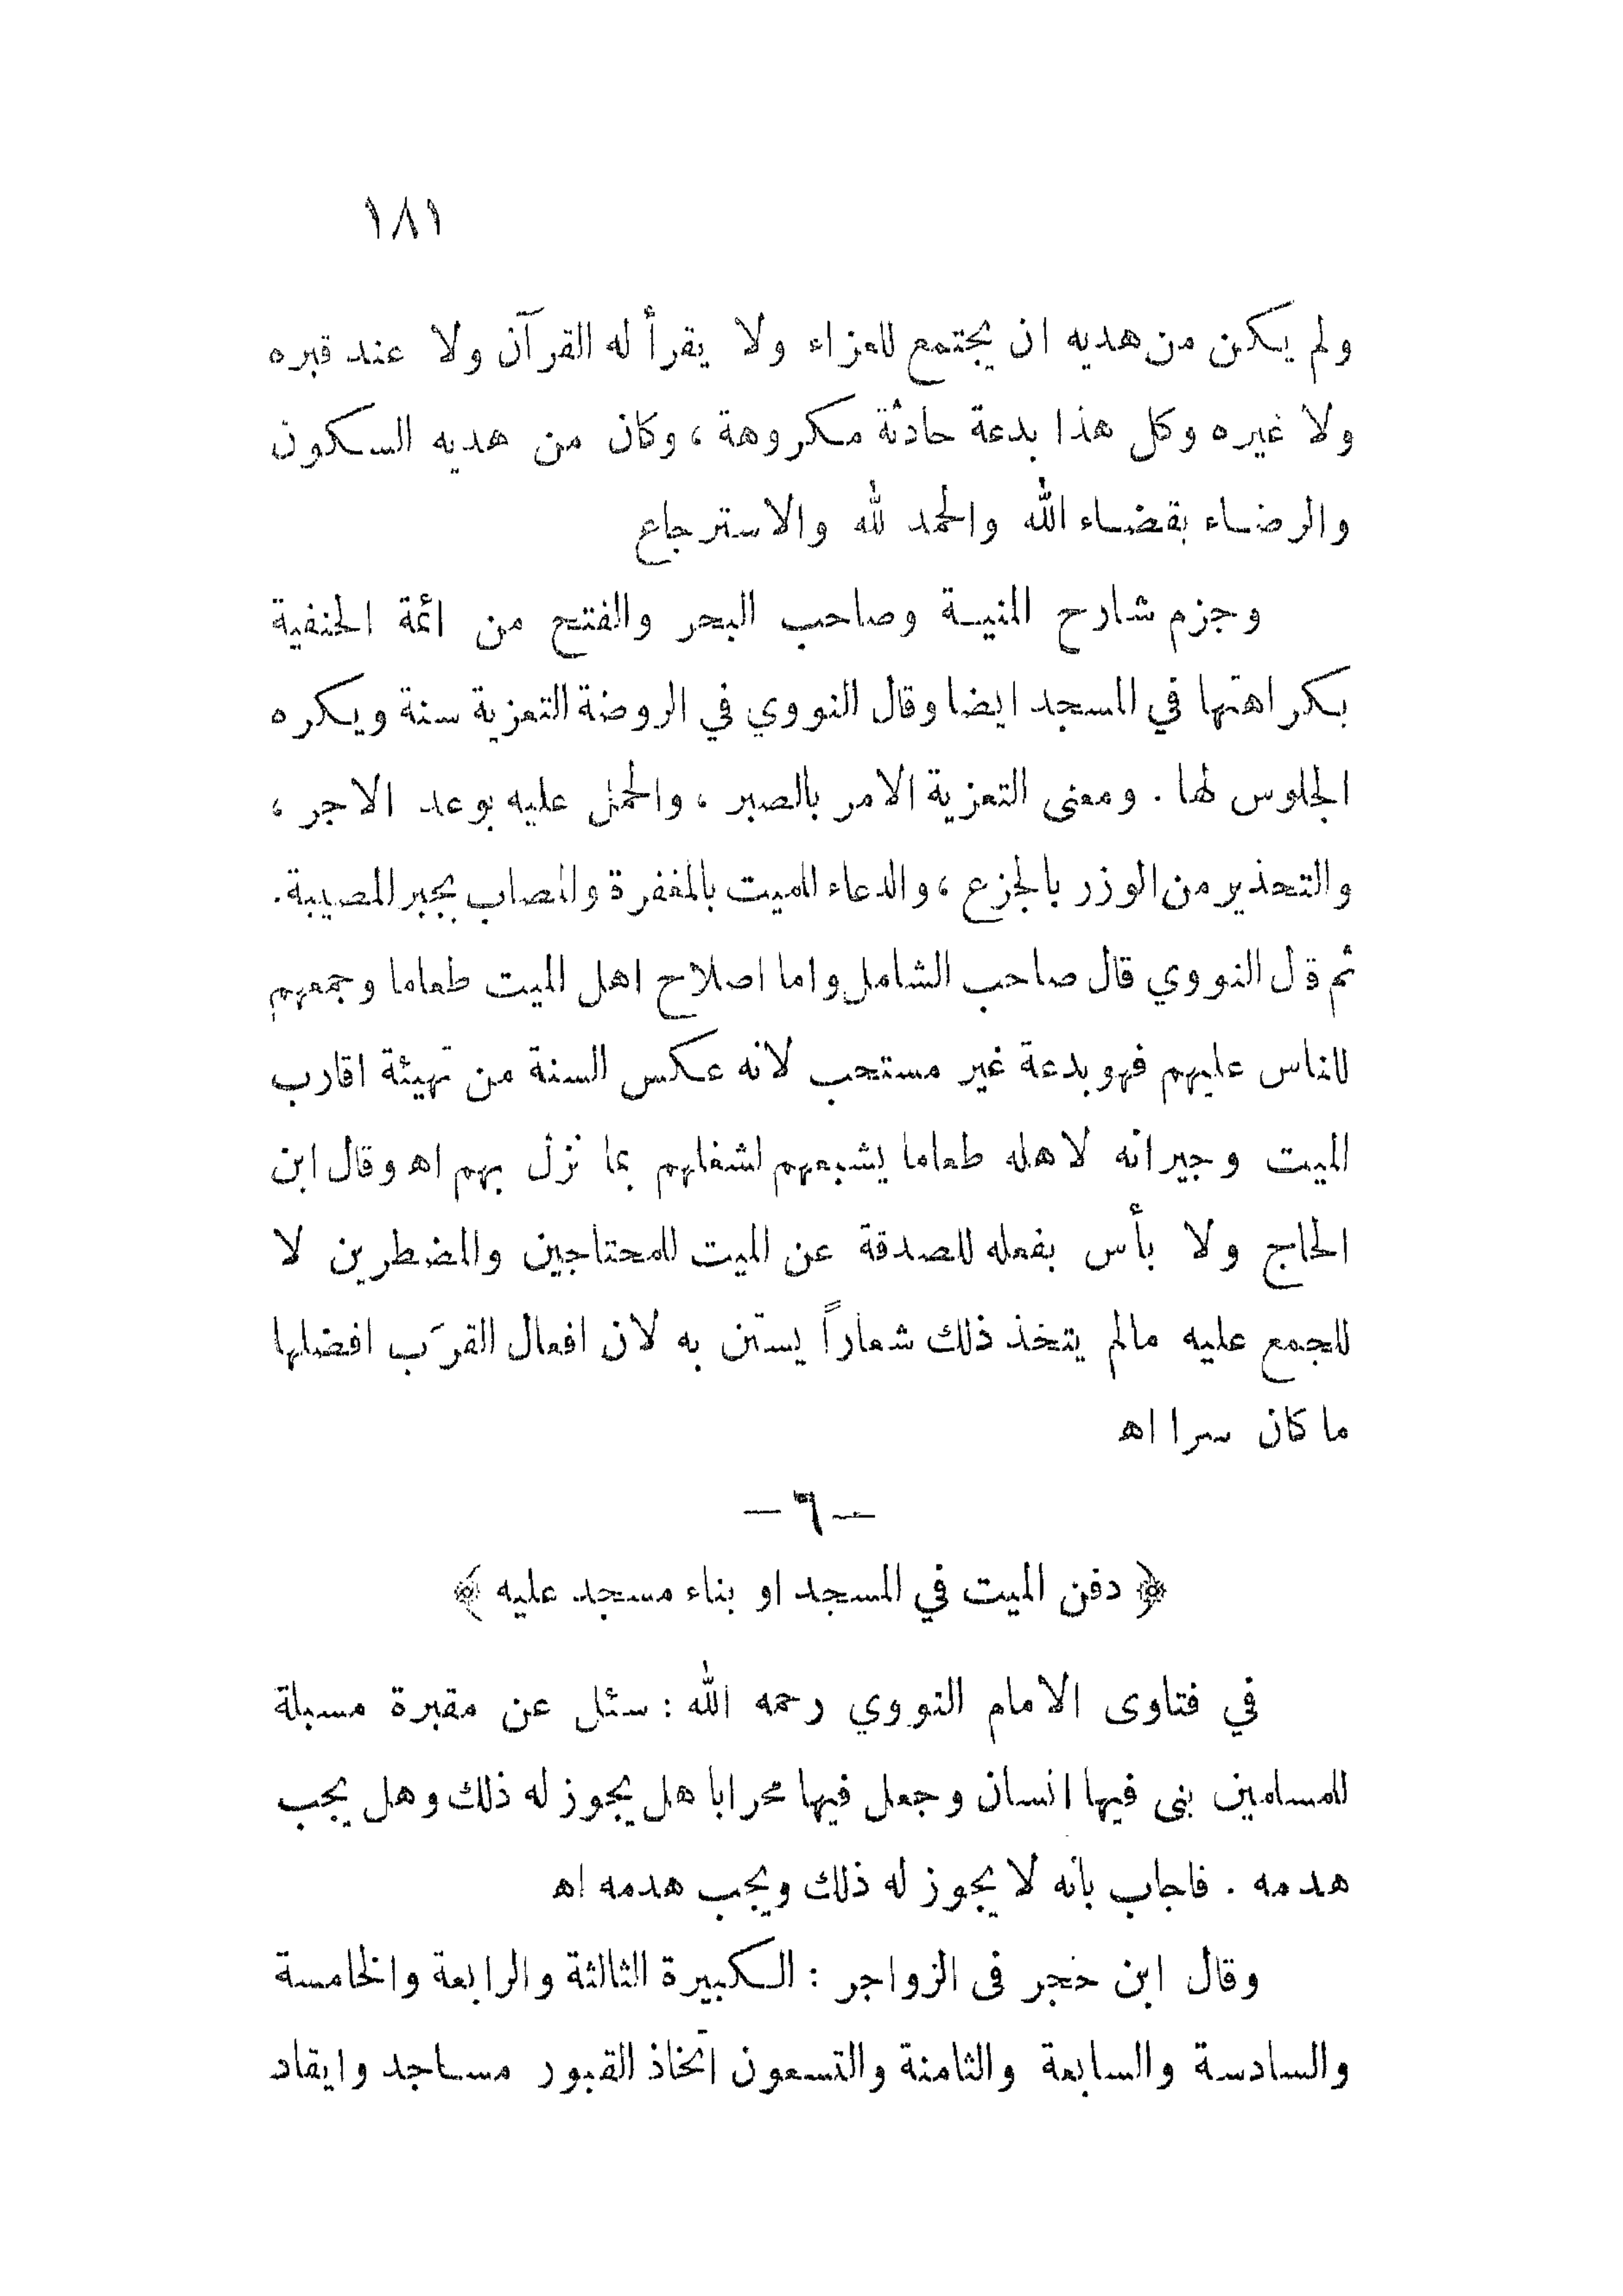 ١٨١
ولم يكن من هديه ان يجتمع للعزاء ولا يقرأ له القرآن ولا عند قبره
ولا غيره وكل هذا بدعة حادثة مكروهة ، وكان من هديه السكون
والرضاء بقضاء الله والحمد لله والاسترجاع
وجزم شارح المنية وصاحب البحر والفتح من ائمة الحنفية
بكراهتها في المسجد ايضا وقال النووي في الروضة التعزية سنة ويكره
الجلوس لها . ومعنى التعزية الامر بالصبر ، والحمل عليه بوعد الاجر ،
والتحذير من الوزر بالجزع ، والدعاء للميت بالمغفرة وللمصاب بجبر المصيبة .
ثم قال النووي قال صاحب الشامل واما اصلاح اهل الميت طعاما وجمعهم
للناس عليهم فهو بدعة غير مستحب لانه عكس السنة من تهيئة اقارب
الميت وجيرانه لاهله طعاما يشبعهم لشغلهم بما نزل بهم اه وقال ابن
الحاج ولا بأس بفعله للصدقة عن الميت للمحتاجين والمضطرين لا
للجمع عليه مالم يتخذ ذلك شعاراً يستن به لان افعال القرَب افضلها
ما كان سرا اه
— ٦ —
﴿ دفن الميت في المسجد او بناء مسجد عليه ﴾
في فتاوى الامام النووي رحمه الله : سئل عن مقبرة مسبلة
للمسلمين بنى فيها انسان وجعل فيها محرابا هل يجوز له ذلك وهل يجب
هدمه . فاجاب بانه لا يجوز له ذلك ويجب هدمه اه
وقال ابن حجر فى الزواجر : الكبيرة الثالثة والرابعة والخامسة
والسادسة والسابعة والثامنة والتسعون اتخاذ القبور مساجد وايقاد